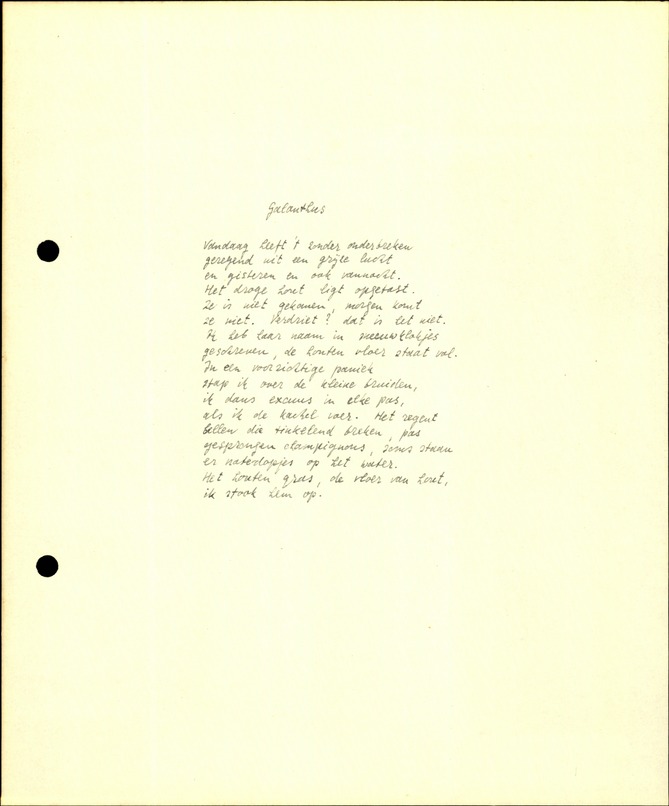 Galanthus
Vandaag heeft 't zonder onderbreken
geregend uit een grijze lucht
en gisteren en ook vannacht.
Het droge hout ligt opgetast.
Ze is niet gekomen, morgen komt
ze niet. Verdriet? dat is het niet.
Ik heb haar naam in sneeuwklokjes
geschreven, de houten vloer staat vol.
In een voorzichtige paniek
stap ik over de kleine bruiden,
ik dans excuus in elke pas,
als ik de kachel voer. Het regent
bellen die tinkelend breken, pas
gesprongen champignons, soms staan
er waterdopjes op het water.
Het houten gras, de vloer van hout,
ik stook hem op.